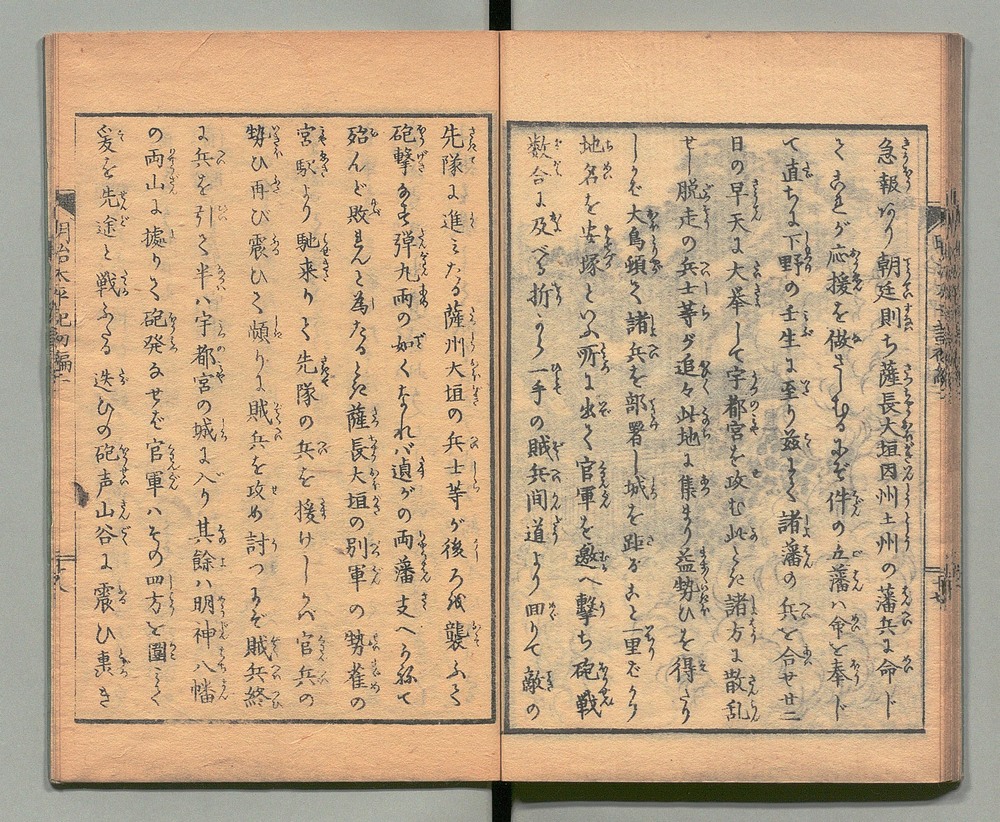 急報あり朝廷則ち薩長大垣因州土州の藩兵に命じ
てこれが応援を做さしむるにぞ件の五藩ハ命を奉じ
て直ちに下野の壬生に至り茲にて諸藩の兵を合せ廿二
日の早天に大挙して宇都宮を攻む此とき諸方に散乱
せし脱走の兵士等が追々此地に集まり益勢ひを得たり
しかど大鳥頭て諸兵を部署し城を距ること一里ばかり
地名を安塚といふ所に出て官軍を邀へ撃ち砲戦
数合に及べる折から一手の賊兵間道より回りて敵の
先隊に進ミたる薩州大垣の兵士等が後ろを襲ふて
砲撃なす弾丸雨の如くなれバ遉がの両藩支へかねて
殆んど敗れんと為たるとき薩長大垣の別軍の勢雀の
宮駅より馳来りて先隊の兵を援けしかバ官兵の
勢ひ再び震ひて頻りに賊兵を攻め討つにぞ賊兵終
に兵を引て半ハ宇都宮の城に入り其餘ハ明神八幡
の両山に據りて砲発なせば官軍ハその四方を圍ミて
爰を先途と戦ふたる迭ひの砲声山谷に震ひ裏き
明治太平記初編二